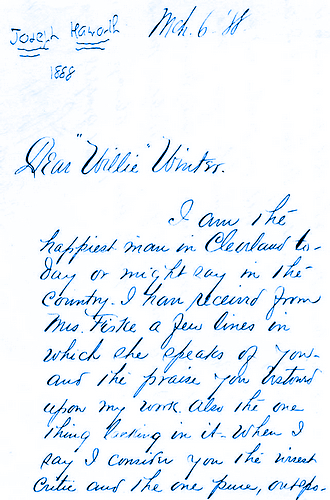 Joseph Haworth
1888
Mch. 6 - '88
Dear "Willie" Winter.
I am the
happiest man in Cleveland to-
day or might say in the
country. I have received from
Mrs. Fiske a few lines in
which she speaks of you -
and the praise you bestowd
upon my work. Also the one
thing lacking in it - When I
say I consider you the
critic and the one pure,